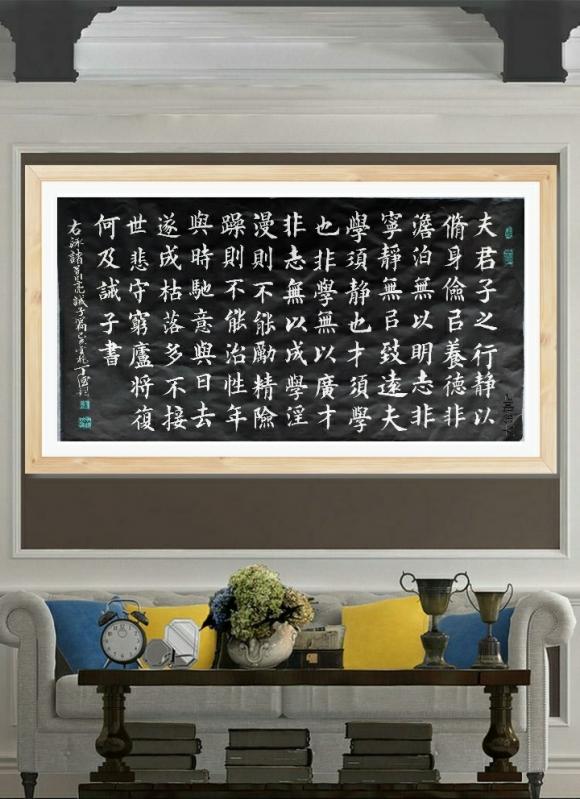 夫君子之行静以
脩身儉㠯養德非
澹泊無以明志非
寧靜無㠯致遠夫
學須静也才須學
也非學無以廣才
非志無以成學淫
漫則不能勵精險
躁則不能治性年
與時馳意與日去
遂成枯落多不接
世悲守窮廬将復
何及誡子書
右詠諸葛亮誡子篇